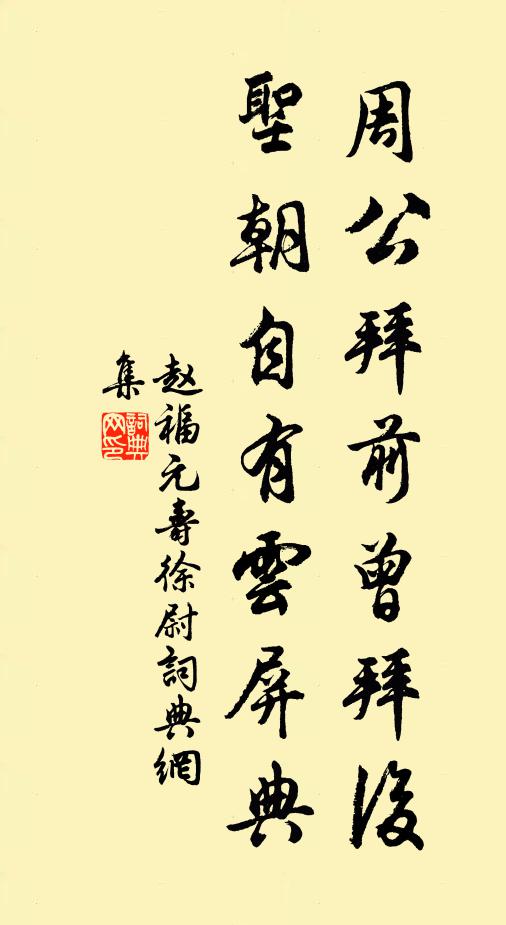 周公拜前曾拜後
聖朝自有雲屏典
赵福元壽徐尉詞典網
集
詞典
网印